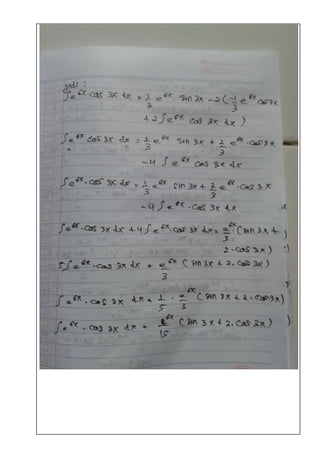 Jadi :
∫e^6x cos 3x dx = 1/3 e^6x . sin 3x - 2 (-1/3 e^6x cos 3x
+ 2 ∫e^6x cos 3x dx )
∫e^6x cos 3x dx = 1/3 e^6x sin 3x + 2/3 e^6x . cos 3x
- 4 ∫e^6x cos 3x dx
∫e^6x . cos 3x dx = 1/3 e^6x . sin 3x + 2/3 e^6x . cos 3x
- 4 ∫e^6x . cos 3x dx
∫e^6x . cos 3x dx + 4 ∫e^6x . cos 3x dx = e^6x/3 (sin 3x +
2 . cos 3x)
5 ∫e^6x . cos 3x dx = e^6x/3 (sin 3x + 2 . cos 3x)
∫e^6x . cos 3x dx = 1/5 . e^6x/3 (sin 3x + 2 . cos 3x)
∫e^6x . cos 3x dx = e^6x/15 (sin 3x + 2 . cos 3x )